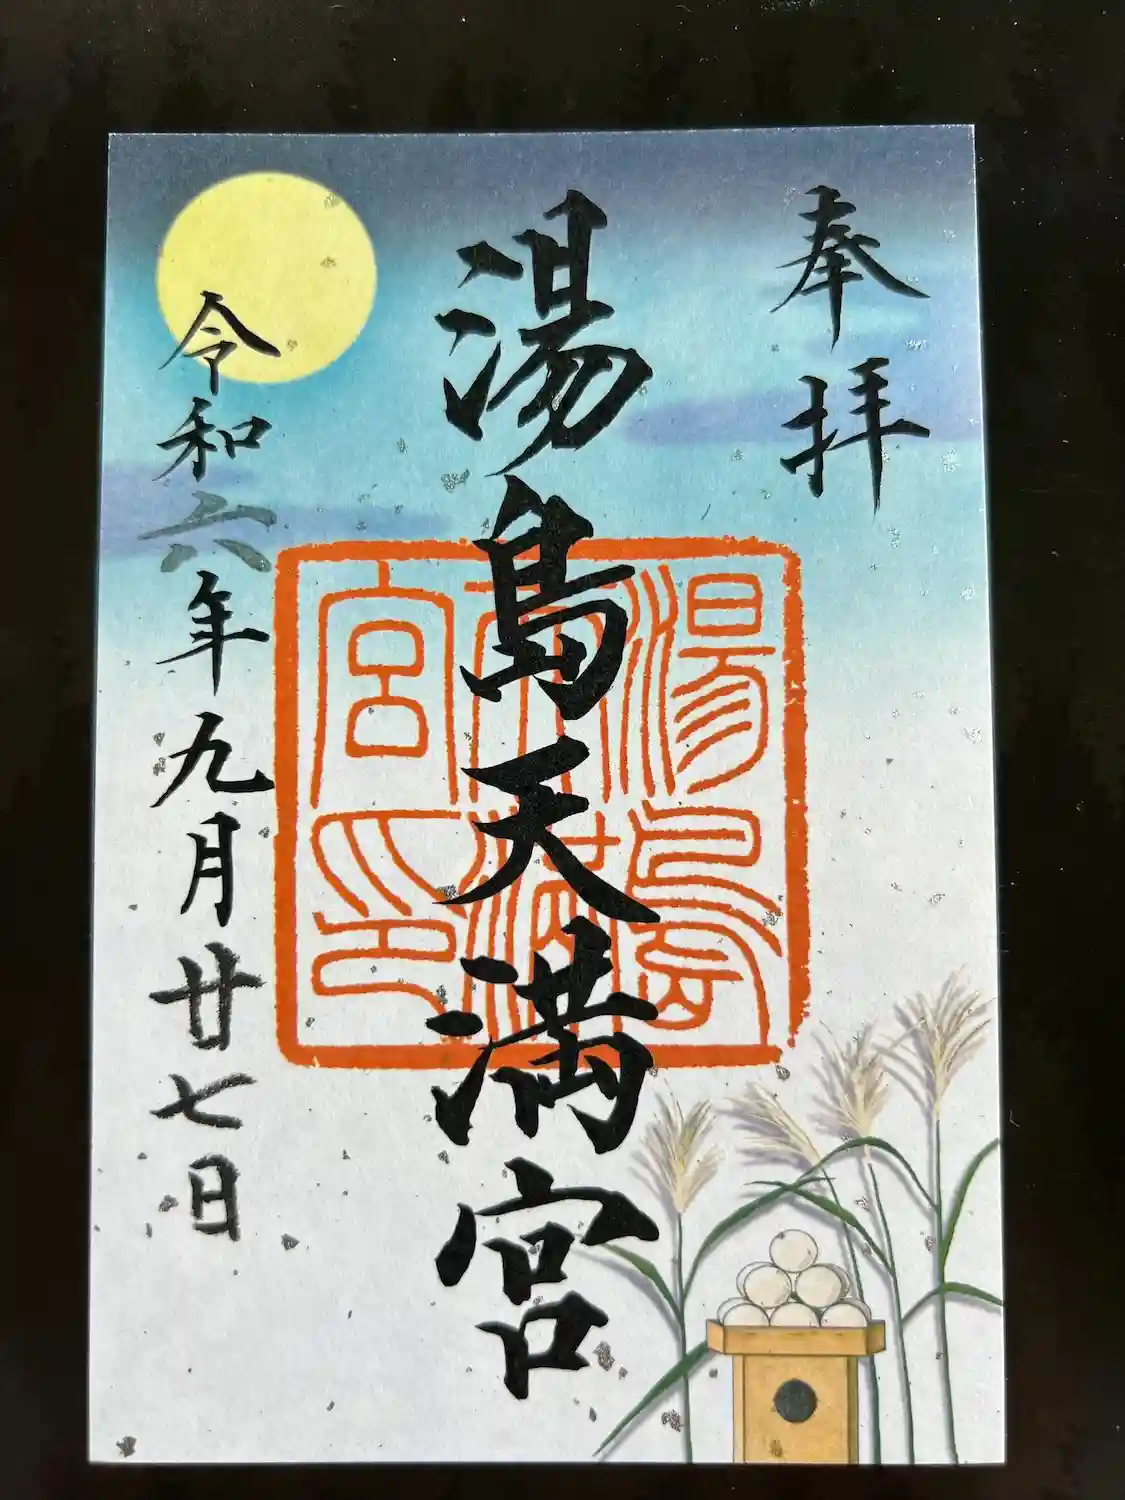 奉拝
湯島天満宮
湯島天満宮印
令和六年九月廿七日